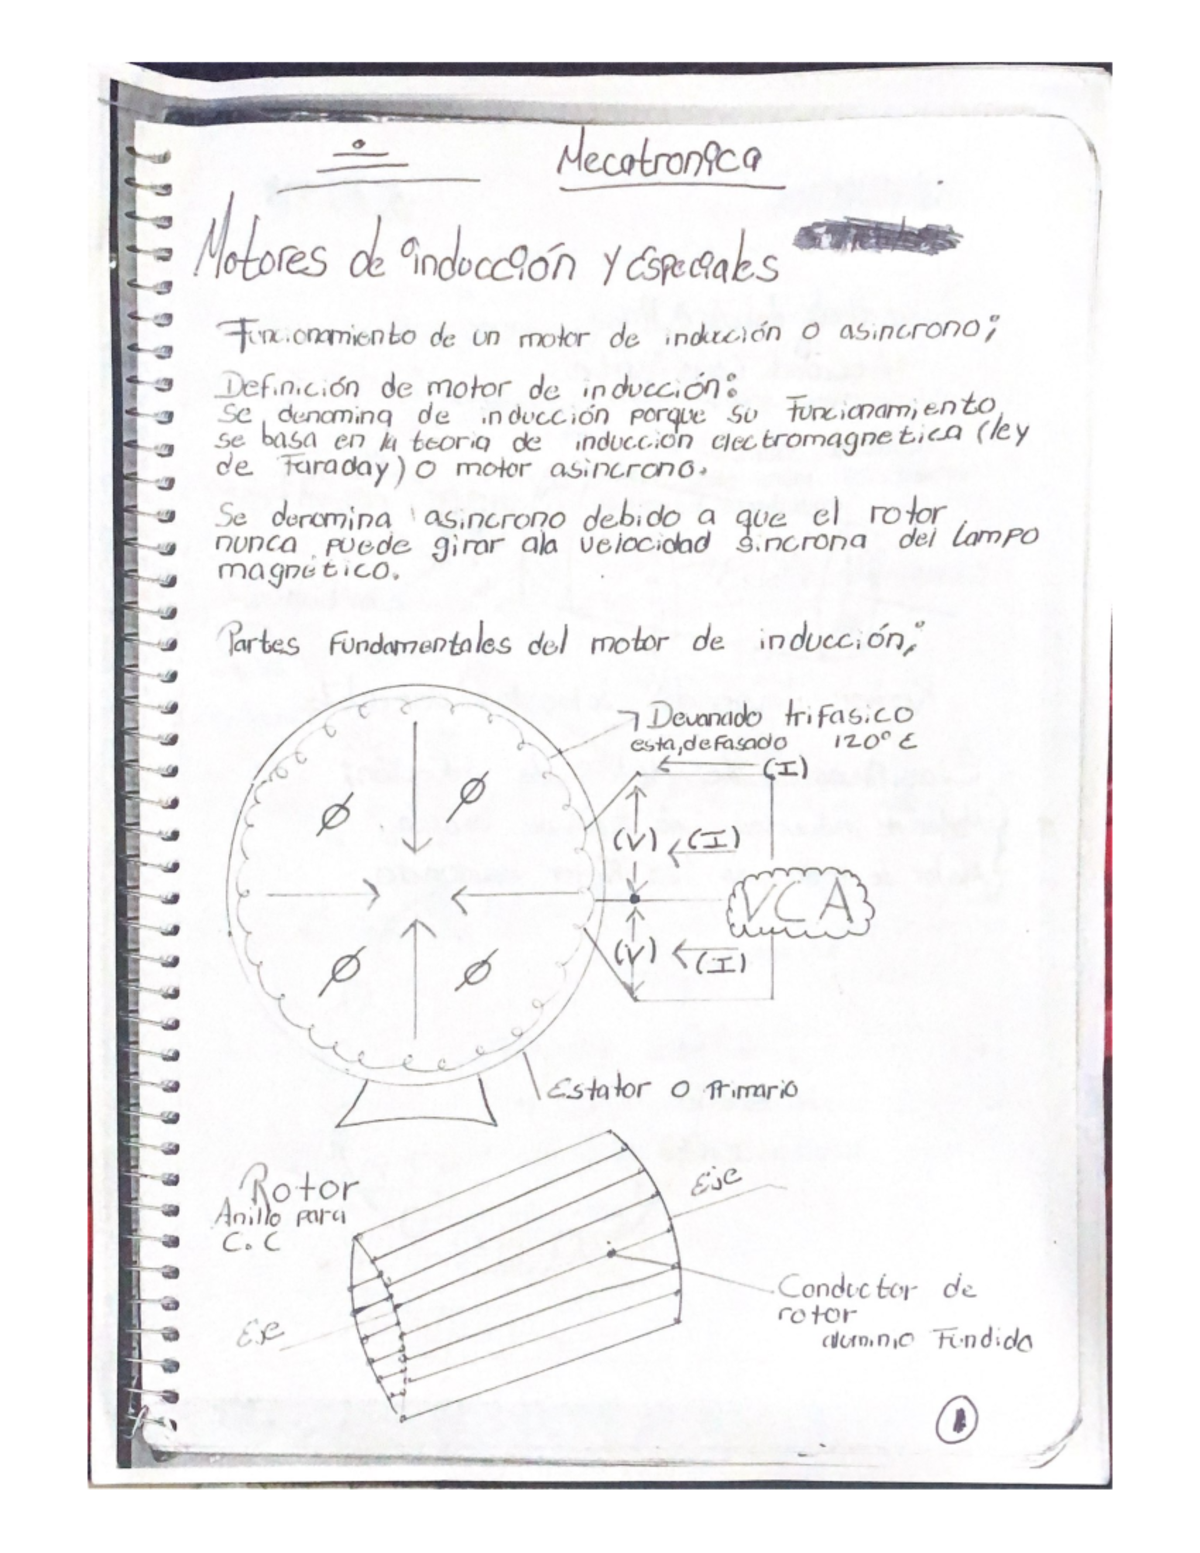 Mecatronica
Motores de inducción y especiales
Funcionamiento de un motor de inducción o asincrono;
Definición de motor de inducción:
Se denomina de inducción porque su funcionamiento
se basa en la teoria de inducción electromagnetica (ley
de Faraday) o motor asincrono.
Se denomina asincrono debido a que el rotor
nunca puede girar ala velocidad sincrona del campo
magnetico.
Partes Fundamentales del motor de inducción;
Devanado trifasico
esta, defasado 120° E
(I)
(V) (I)
VCA
(V) (I)
Ø Ø
Ø Ø
Estator o Primario
Rotor
Anillo para
C.C
Eje
Eje
Conductor de
rotor
aluminio Fundido
1